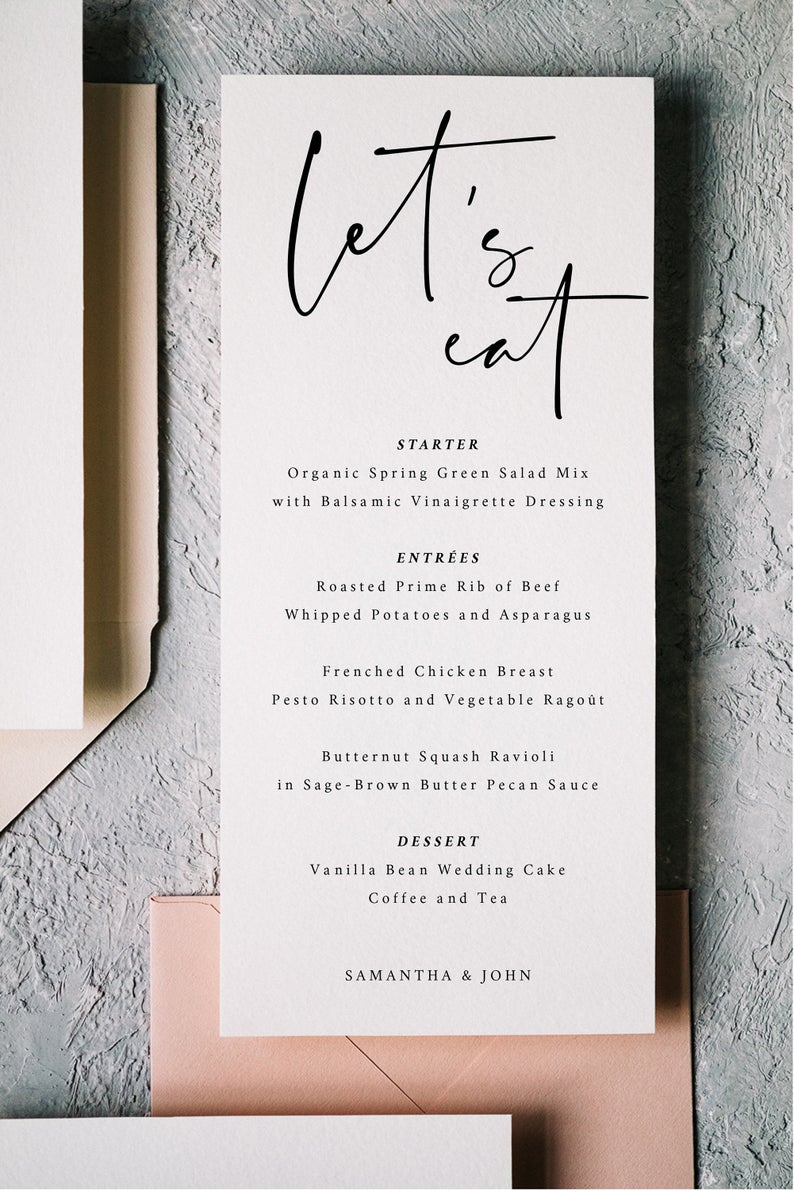 let's
eat
STARTER
Organic Spring Green Salad Mix
with Balsamic Vinaigrette Dressing
ENTRÉES
Roasted Prime Rib of Beef
Whipped Potatoes and Asparagus
Frenched Chicken Breast
Pesto Risotto and Vegetable Ragoût
Butternut Squash Ravioli
in Sage-Brown Butter Pecan Sauce
DESSERT
Vanilla Bean Wedding Cake
Coffee and Tea
SAMANTHA & JOHN